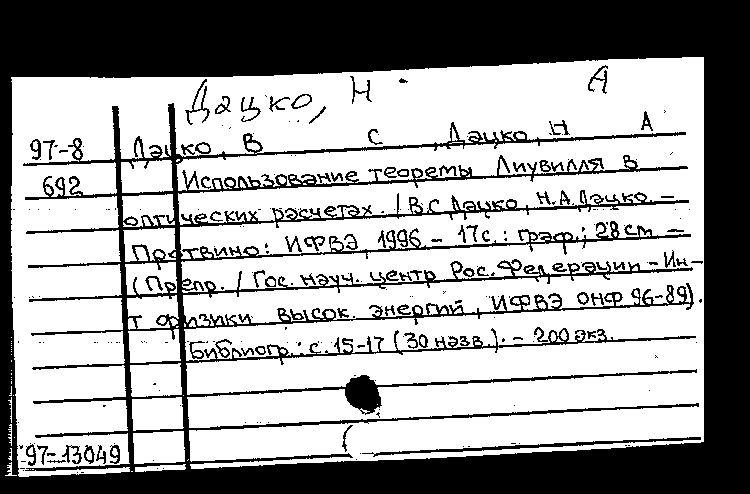 Дацко, Н. А
97-8 Дацко, В С , Дацко, Н А
692 Использование теоремы Лиувилля в
оптических расчетах. / В.С. Дацко, Н.А. Дацко. –
Протвино: ИФВЭ, 1996. – 17с.: граф.; 28 см. –
(Препр. / Гос. науч. центр Рос. Федерации – Ин-
т физики высок. энергий, ИФВЭ ОНФ 96-89).
Библиогр.: с. 15-17 (30 назв.). – 200 экз.
97-13049